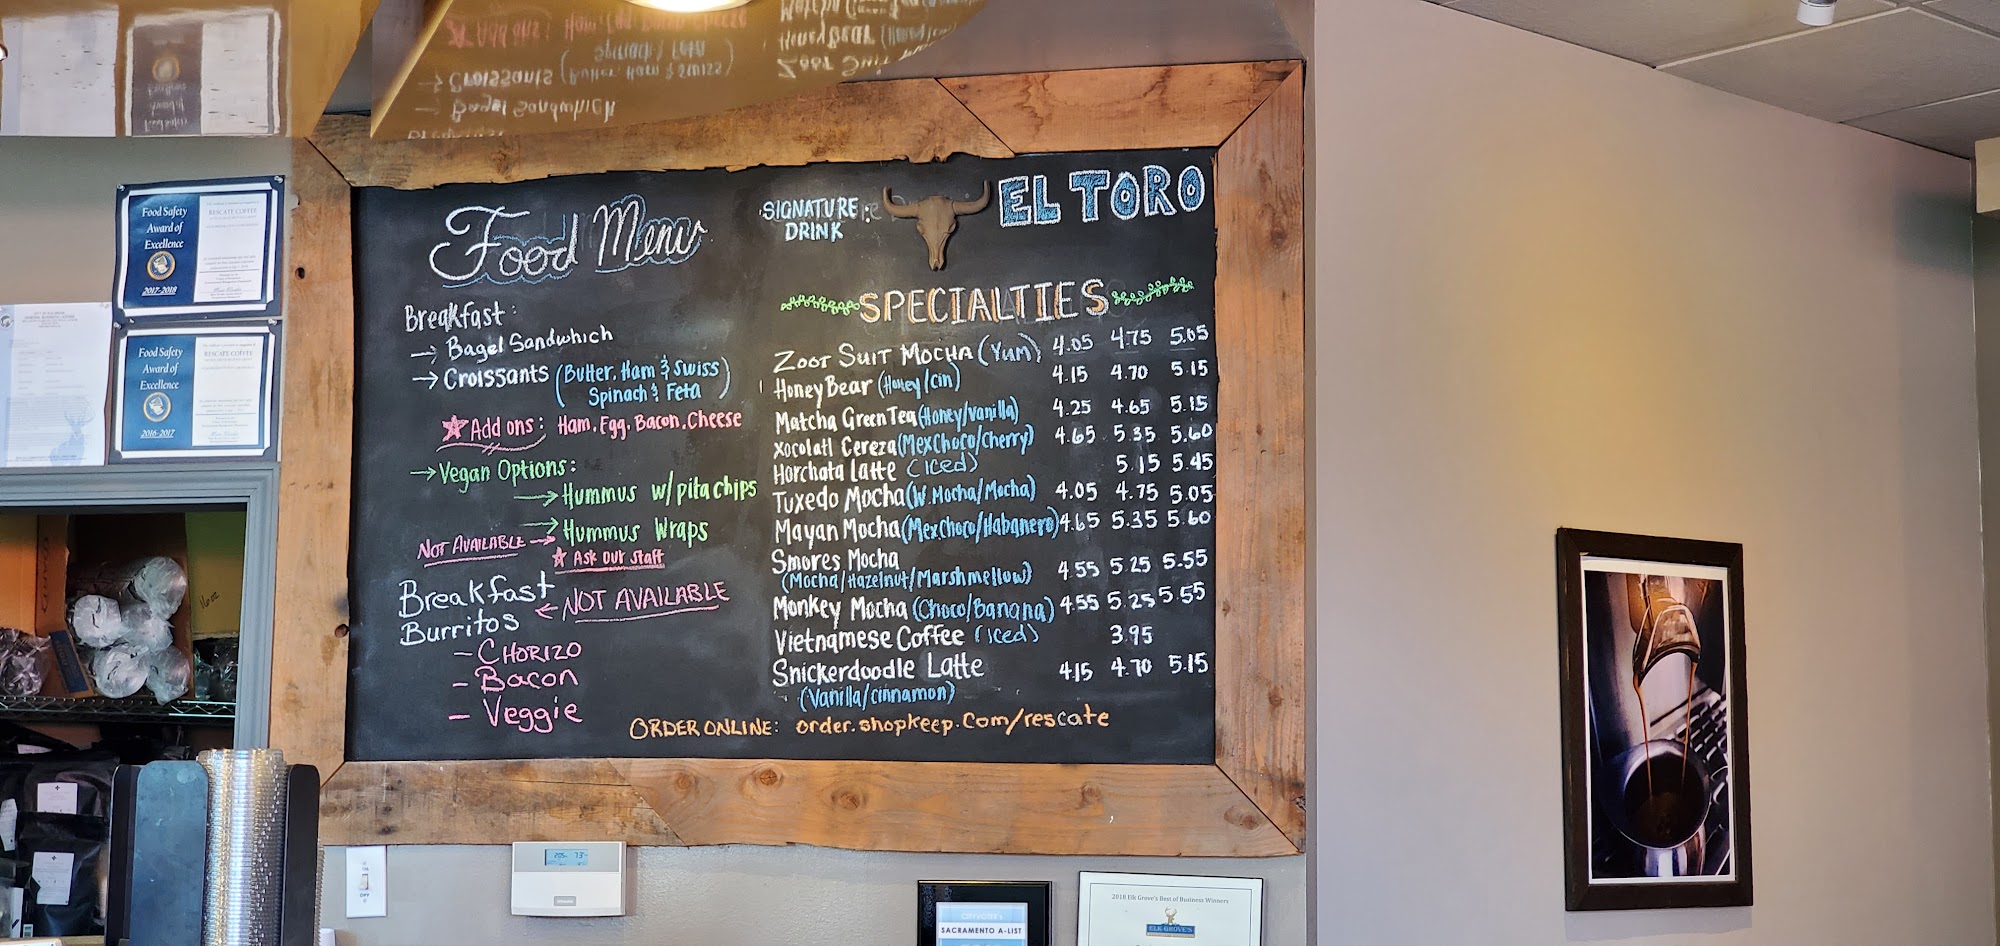 Food Menu
Breakfast:
→ Bagel Sandwhich
→ Croissants (Butter, Ham & Swiss
Spinach & Feta)
★ Add ons: Ham, Egg, Bacon, Cheese
→ Vegan Options:
→ Hummus w/pita chips
→ Hummus Wraps
NOT AVAILABLE →
★ Ask our staff
Breakfast
Burritos ← NOT AVAILABLE
- CHORIZO
- Bacon
- Veggie
SIGNATURE:
DRINK
EL TORO
SPECIALTIES
ZOOT SUIT MOCHA (Yum) 4.05 4.75 5.05
Honey Bear (Honey/cin) 4.15 4.70 5.15
Matcha Green Tea (Honey/vanilla) 4.25 4.65 5.15
Xocolatl Cereza (MexChoco/Cherry) 4.65 5.35 5.60
Horchata Latte (Iced) 5.15 5.45
Tuxedo Mocha (W.Mocha/Mocha) 4.05 4.75 5.05
Mayan Mocha (MexChoco/Habanero) 4.65 5.35 5.60
Smores Mocha
(Mocha/Hazelnut/Marshmellow) 4.55 5.25 5.55
Monkey Mocha (Choco/Banana) 4.55 5.25 5.55
Vietnamese Coffee (Iced) 3.95
Snickerdoodle Latte 4.15 4.70 5.15
(Vanilla/cinnamon)
ORDER ONLINE: order.shopkeep.com/rescate
Food Safety
Award of
Excellence
2017-2018
RESCATE COFFEE
Food Safety
Award of
Excellence
2016-2017
RESCATE COFFEE
16oz
OFF
SACRAMENTO A-LIST
2018 Elk Grove's Best of Business Winners
ELK GROVE'S